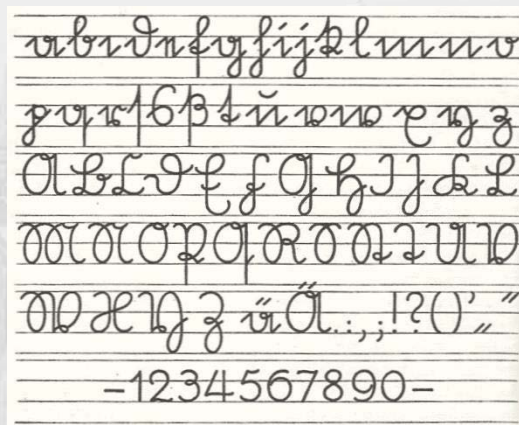 a b c d e f g h i j k l m n o
p q r ſ s ß t u v w x y z
A B C D E F G H I J K L
M N O P Q R S St T U V
W X Y Z ä Ä . : , ; ! ? ( ) ’ „ “
–1234567890–